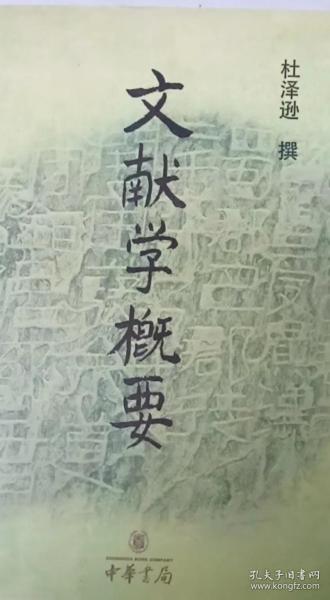 杜泽逊 撰
文献学概要
ZHONGHUA BOOK COMPANY
中华书局
孔夫子旧书网